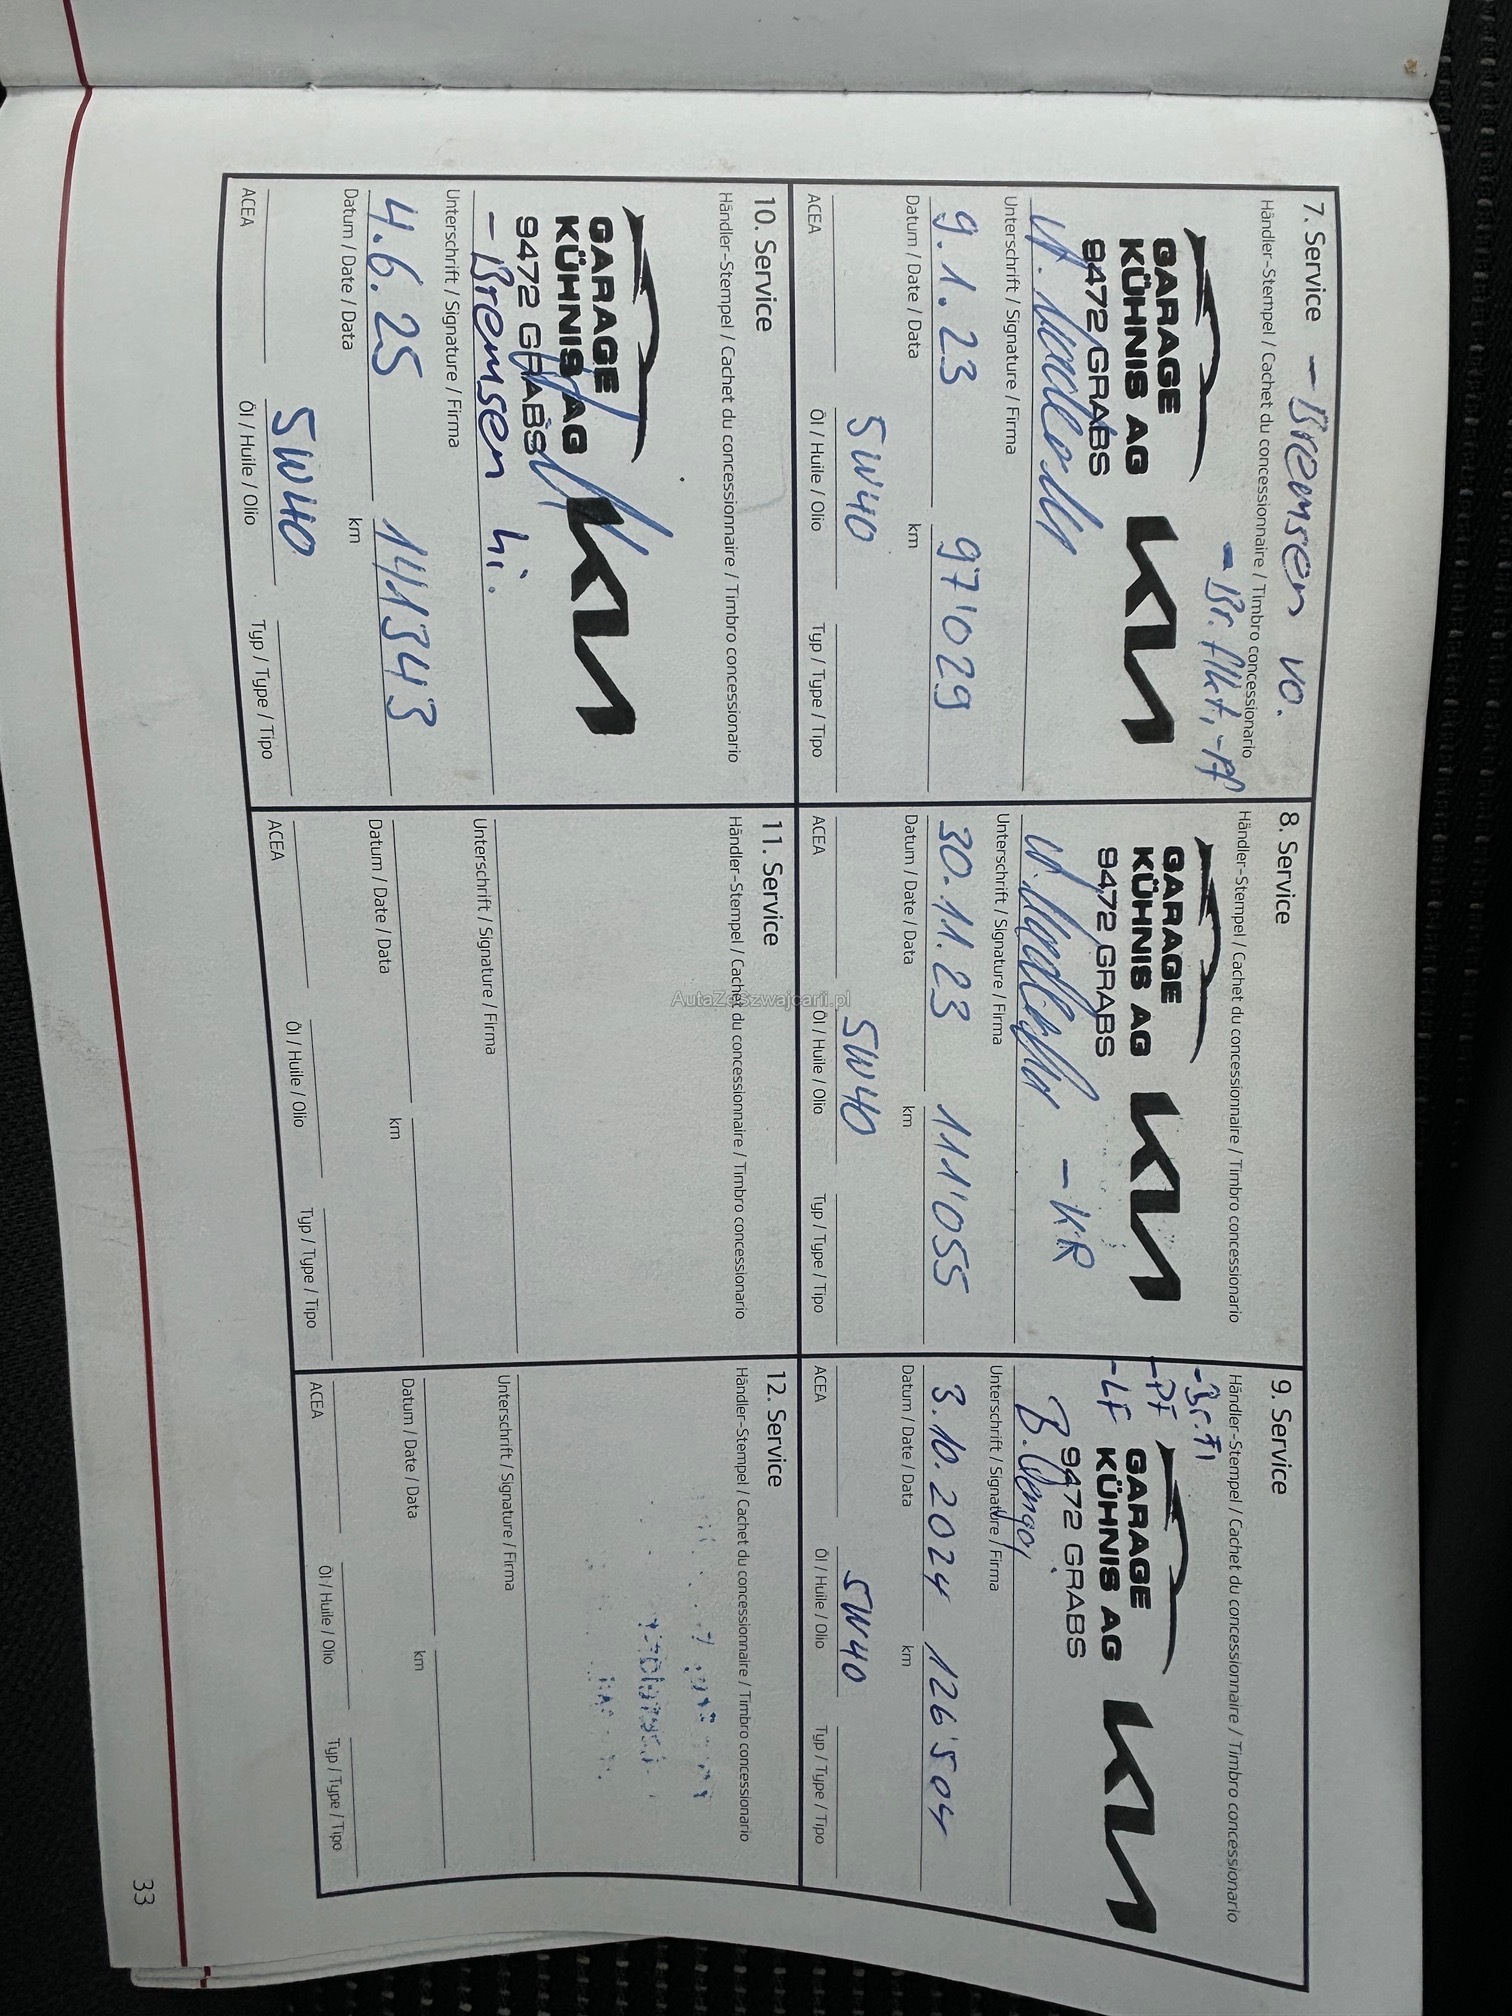 7. Service - Bremsen vo.
Händler-Stempel / Cachet du concessionnaire / Timbro concessionario
GARAGE
KÜHNIS AG
9472 GRABS
KIA
Unterschrift / Signature / Firma
9.1.23 97'029
Datum / Date / Data km
5W40
ACEA Öl / Huile / Olio Typ / Type / Tipo
8. Service
Händler-Stempel / Cachet du concessionnaire / Timbro concessionario
GARAGE
KÜHNIS AG
9472 GRABS
KIA
- KR
Unterschrift / Signature / Firma
30.11.23 111'055
Datum / Date / Data km
5W40
ACEA Öl / Huile / Olio Typ / Type / Tipo
9. Service
Händler-Stempel / Cachet du concessionnaire / Timbro concessionario
- Br.Fl
- PF
- LF
GARAGE
KÜHNIS AG
9472 GRABS
KIA
Unterschrift / Signature / Firma
3.10.2024 126'504
Datum / Date / Data km
5W40
ACEA Öl / Huile / Olio Typ / Type / Tipo
10. Service
Händler-Stempel / Cachet du concessionnaire / Timbro concessionario
GARAGE
KÜHNIS AG
9472 GRABS
KIA
- Bremsen hi.
Unterschrift / Signature / Firma
4.6.25 141343
Datum / Date / Data km
5W40
ACEA Öl / Huile / Olio Typ / Type / Tipo
11. Service
Händler-Stempel / Cachet du concessionnaire / Timbro concessionario
Unterschrift / Signature / Firma
Datum / Date / Data km
ACEA Öl / Huile / Olio Typ / Type / Tipo
12. Service
Händler-Stempel / Cachet du concessionnaire / Timbro concessionario
Unterschrift / Signature / Firma
Datum / Date / Data km
ACEA Öl / Huile / Olio Typ / Type / Tipo
33
AutaZeSzwajcarii.pl